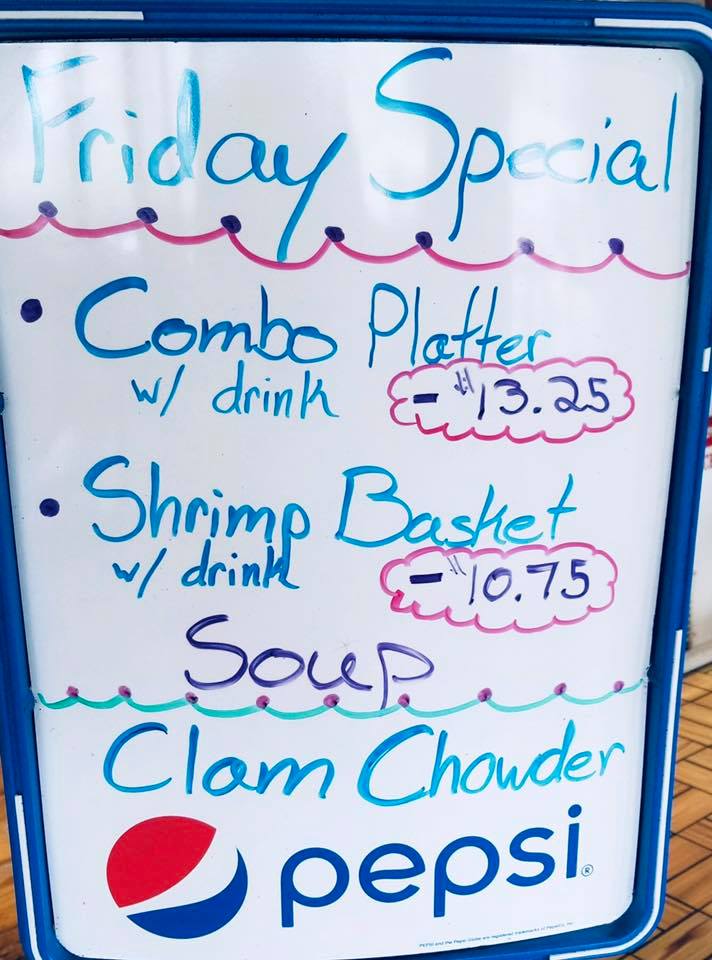 Friday Special
• Combo Platter
w/ drink - "13.25
• Shrimp Basket
w/ drink - "10.75
Soup
Clam Chowder
pepsi®